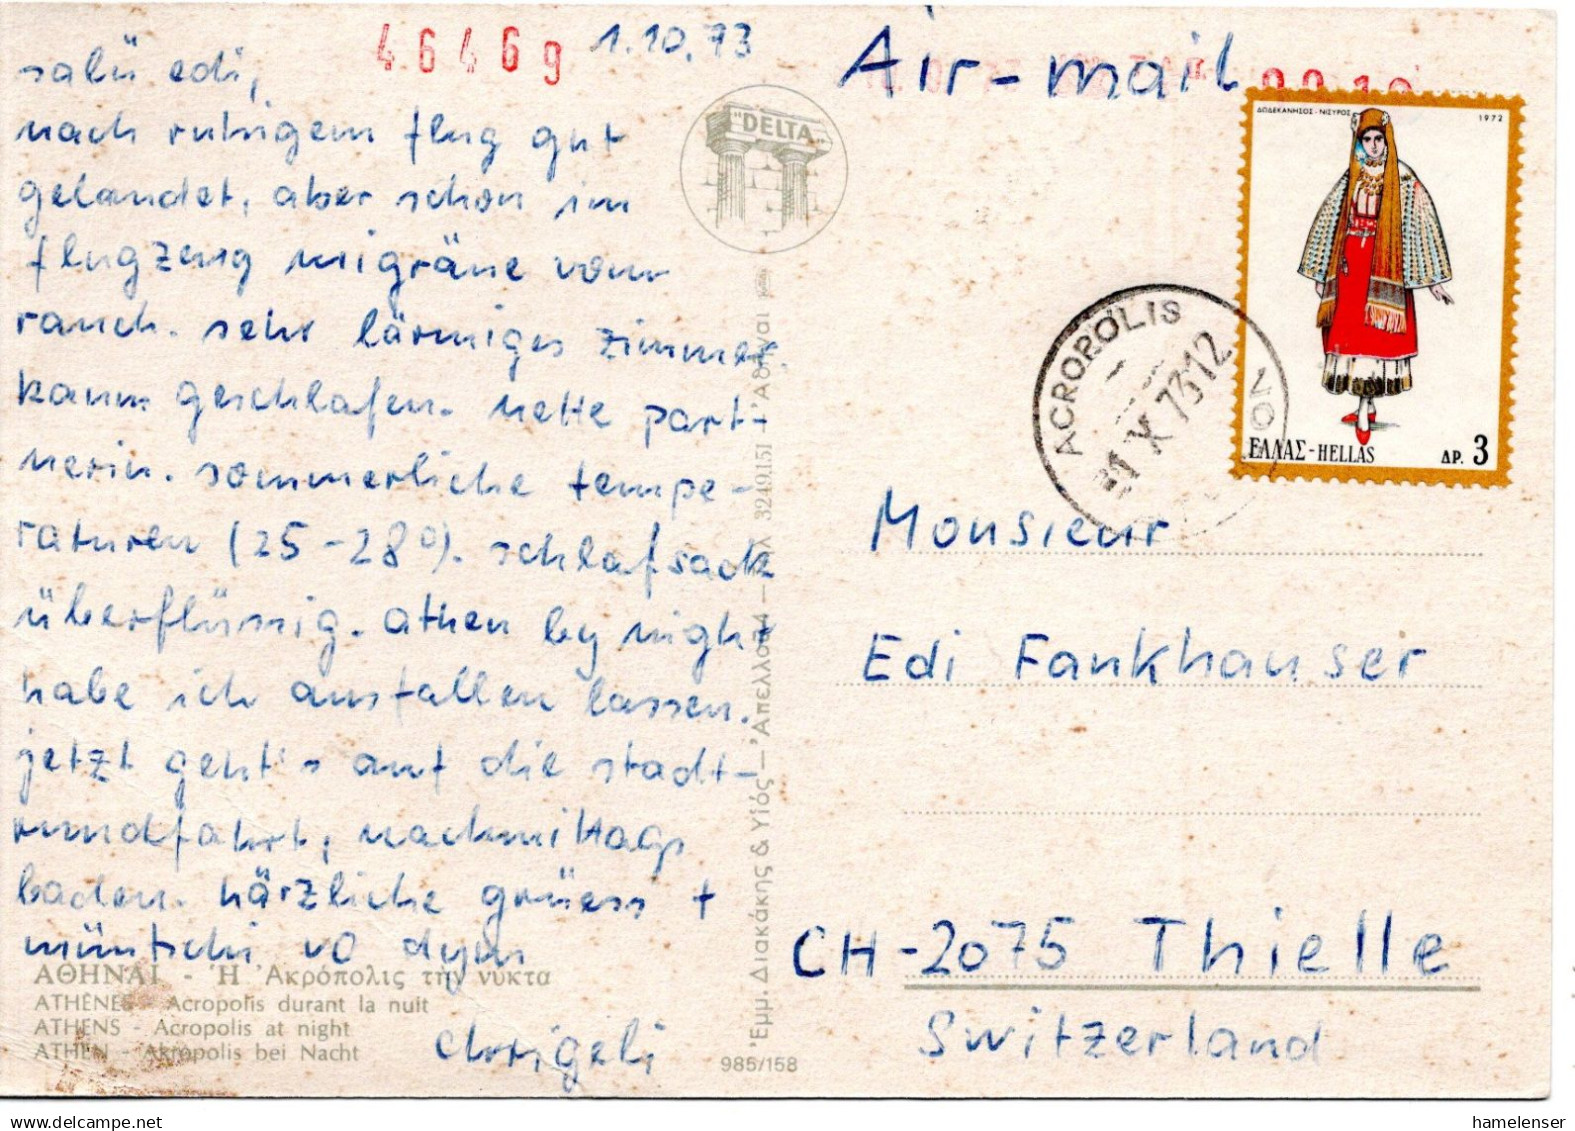 46469
1.10.73
Air-mail
salü edi,
nach ruhigem flug gut
gelandet, aber schon im
flugzeug migräne vom
rauch. sehr lärmiges zimmer.
kaum geschlafen. nette part-
nerin. sommerliche tempe-
raturen (25-28°). schlafsack
überflüssig. athen by night
habe ich ausfallen lassen.
jetzt geht's auf die stadt-
rundfahrt, nachmittags
baden. härzliche grüess +
müntschi vo dym
chrigeli
"DELTA"
ΔΩΔΕΚΑΝΗΣΟΣ-ΝΙΣΥΡΟΣ
1972
ΕΛΛΑΣ-HELLAS ΔΡ. 3
ACROPOLIS
X 73 12
Monsieur
Edi Fankhauser
CH-2075 Thielle
Switzerland
ΑΘΗΝΑΙ - Ἡ Ἀκρόπολις τὴν νύκτα
ATHÈNES - Acropolis durant la nuit
ATHENS - Acropolis at night
ATHEN - Akropolis bei Nacht
985/158
Ἐμμ. Διακάκης & Υἱός - Ἀπελλοῦ 4 - τηλ 3249.151 - Ἀθῆναι
hamelenser